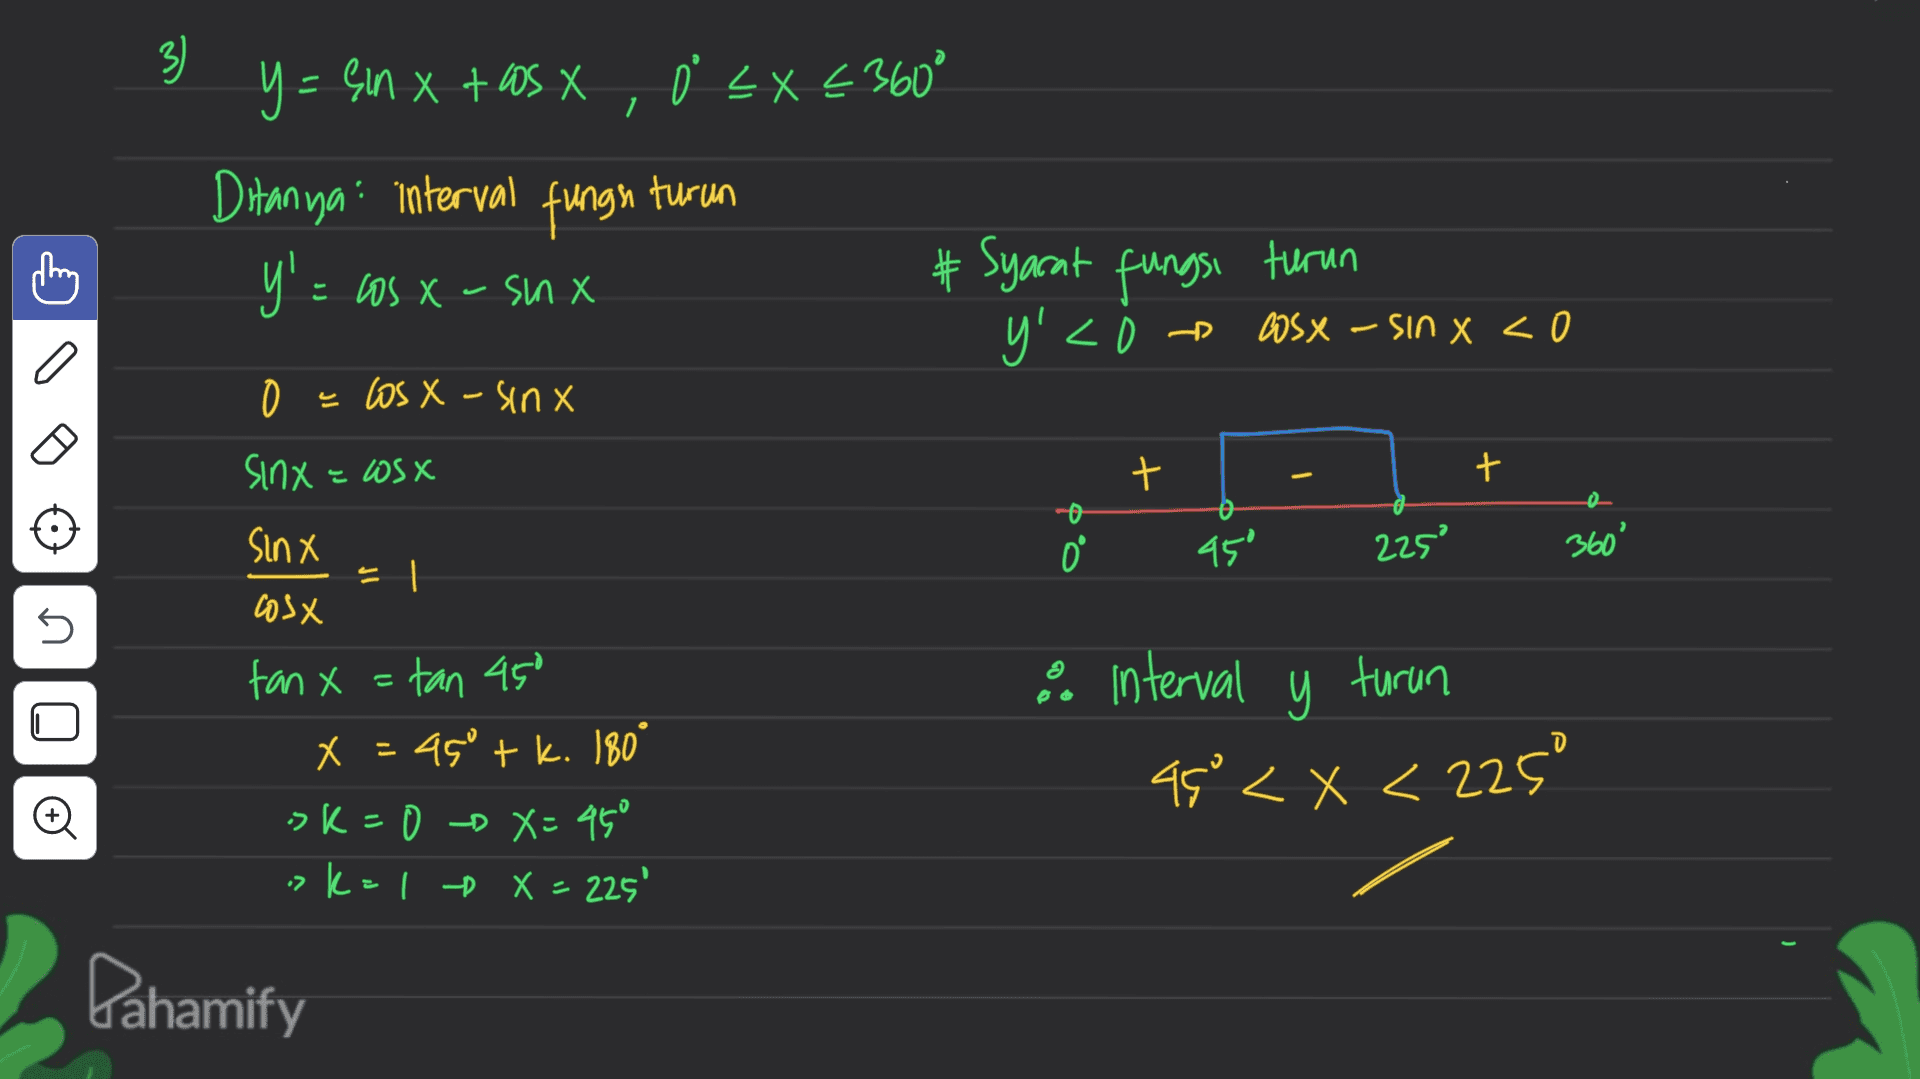 3) y = sin x + cos x , 0° ≤ x ≤ 360°
Ditanya : interval fungsi turun
y' = cos x - sin x
0 = cos x - sin x
sin x = cos x
sin x / cos x = 1
tan x = tan 45°
x = 45° + k. 180°
-> k = 0 → x = 45°
-> k = 1 → x = 225°
# Syarat fungsi turun
y' < 0 → cos x - sin x < 0
+ - +
0° 45° 225° 360°
∴ interval y turun
45° < x < 225°
Pahamify